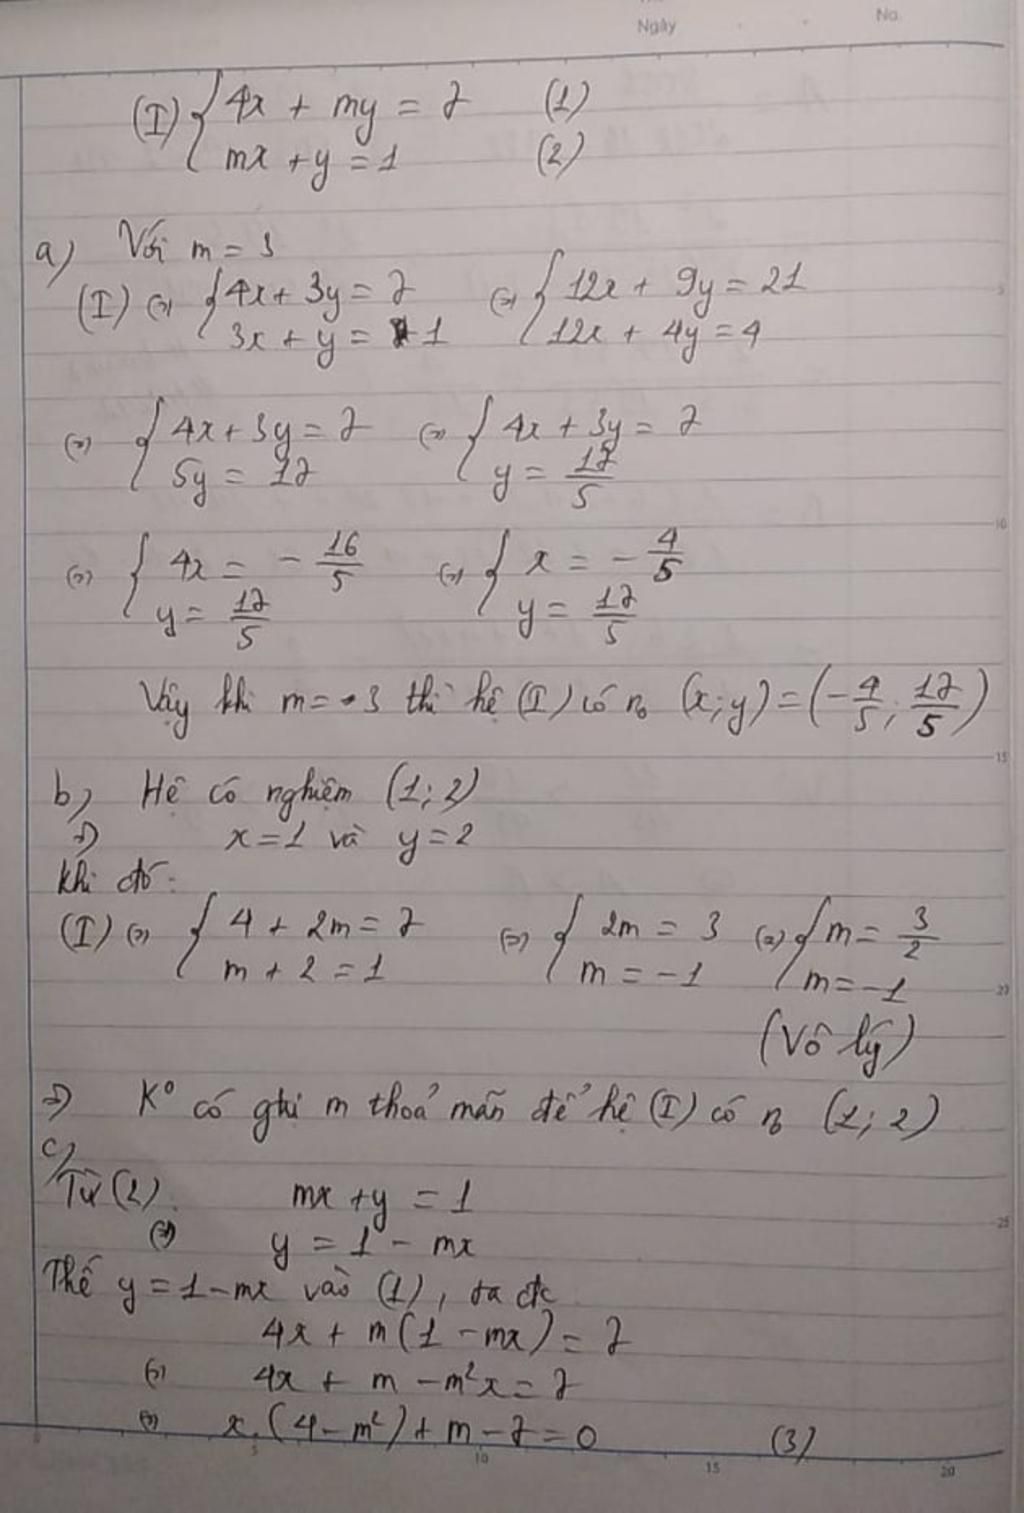 Ngày
No.
(I) { 4x + my = 7 (1)
mx + y = 1 (2)
a) Với m = 3
(I) (=) { 4x + 3y = 7 (=) { 12x + 9y = 21
3x + y = 1 12x + 4y = 4
(=) { 4x + 3y = 7 (=) { 4x + 3y = 7
5y = 17 y = 17/5
(=) { 4x = - 16/5 (=) { x = - 4/5
y = 17/5 y = 17/5
Vậy khi m = 3 thì hệ (I) có n0 (x; y) = (- 4/5; 17/5)
b) Hệ có nghiệm (1; 2)
=) x = 1 và y = 2
Khi đó:
(I) (=) { 4 + 2m = 7 (=) { 2m = 3 (=) { m = 3/2
m + 2 = 1 m = -1 m = -1
(Vô lý)
=) K° có gtri m thoả mãn để hệ (I) có n0 (1; 2)
c)
Từ (2) mx + y = 1
(=) y = 1 - mx
Thế y = 1 - mx vào (1), ta đc
4x + m(1 - mx) = 7
(=) 4x + m - m²x = 7
(=) x.(4 - m²) + m - 7 = 0 (3)
5
10
15
20
25
5
10
15
20